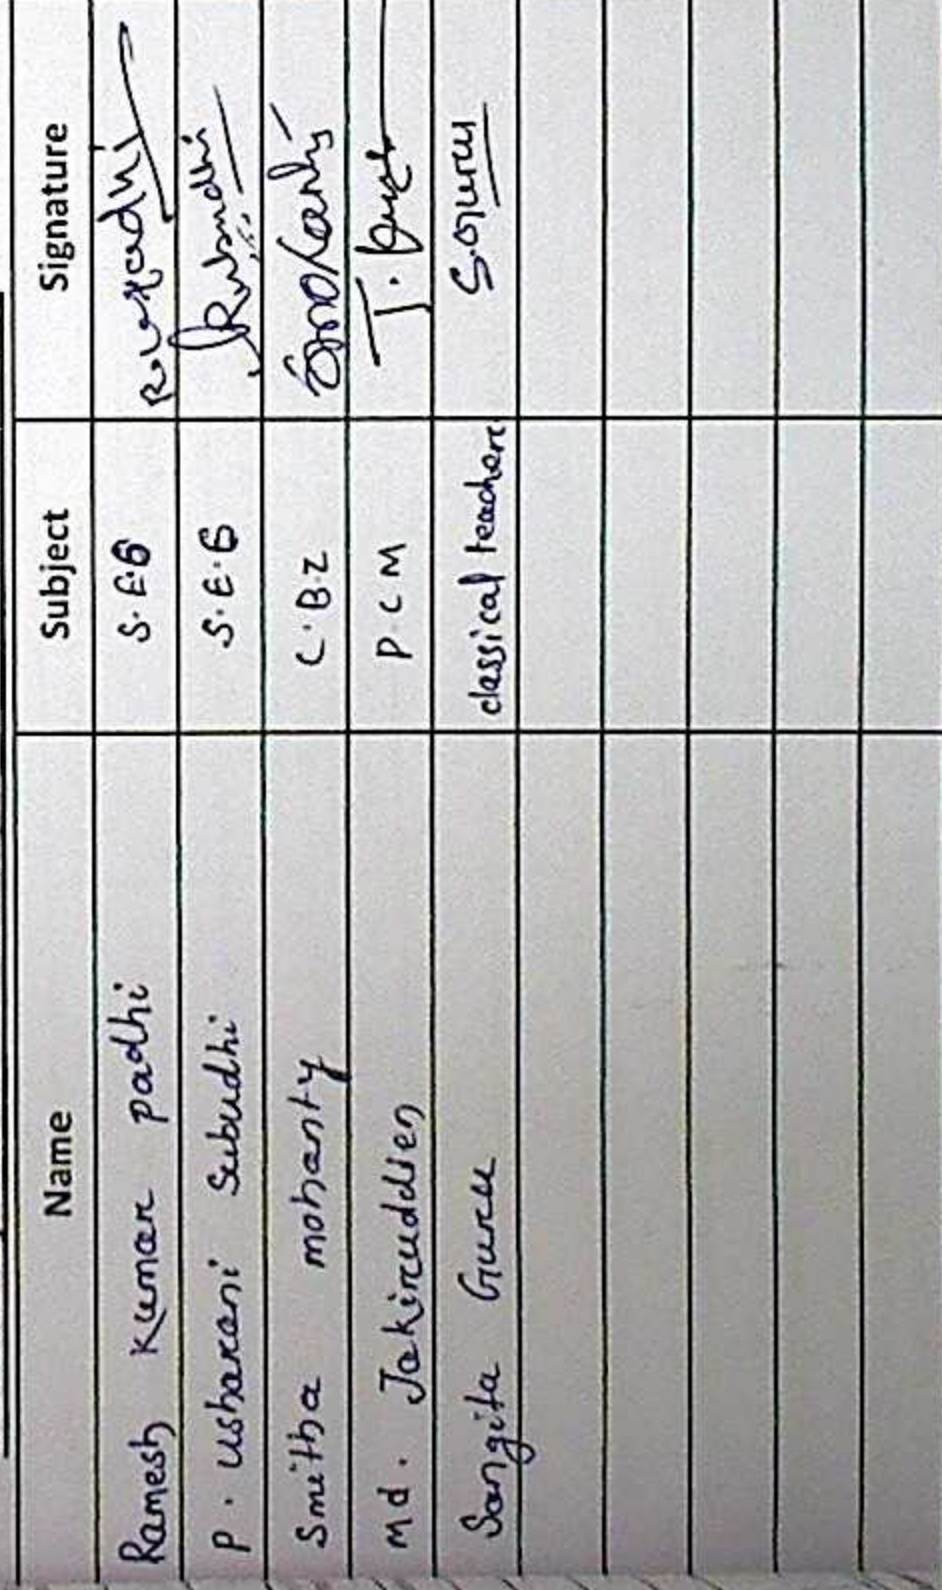 Name Subject Signature
Ramesh Kumar padhi S.E.6
P. Usharani Subudhi S.E.6
Smitha mohanty C.B.Z
Md. Jakiruddien P.C.M
Sangita Guru classical teacher S.Guru